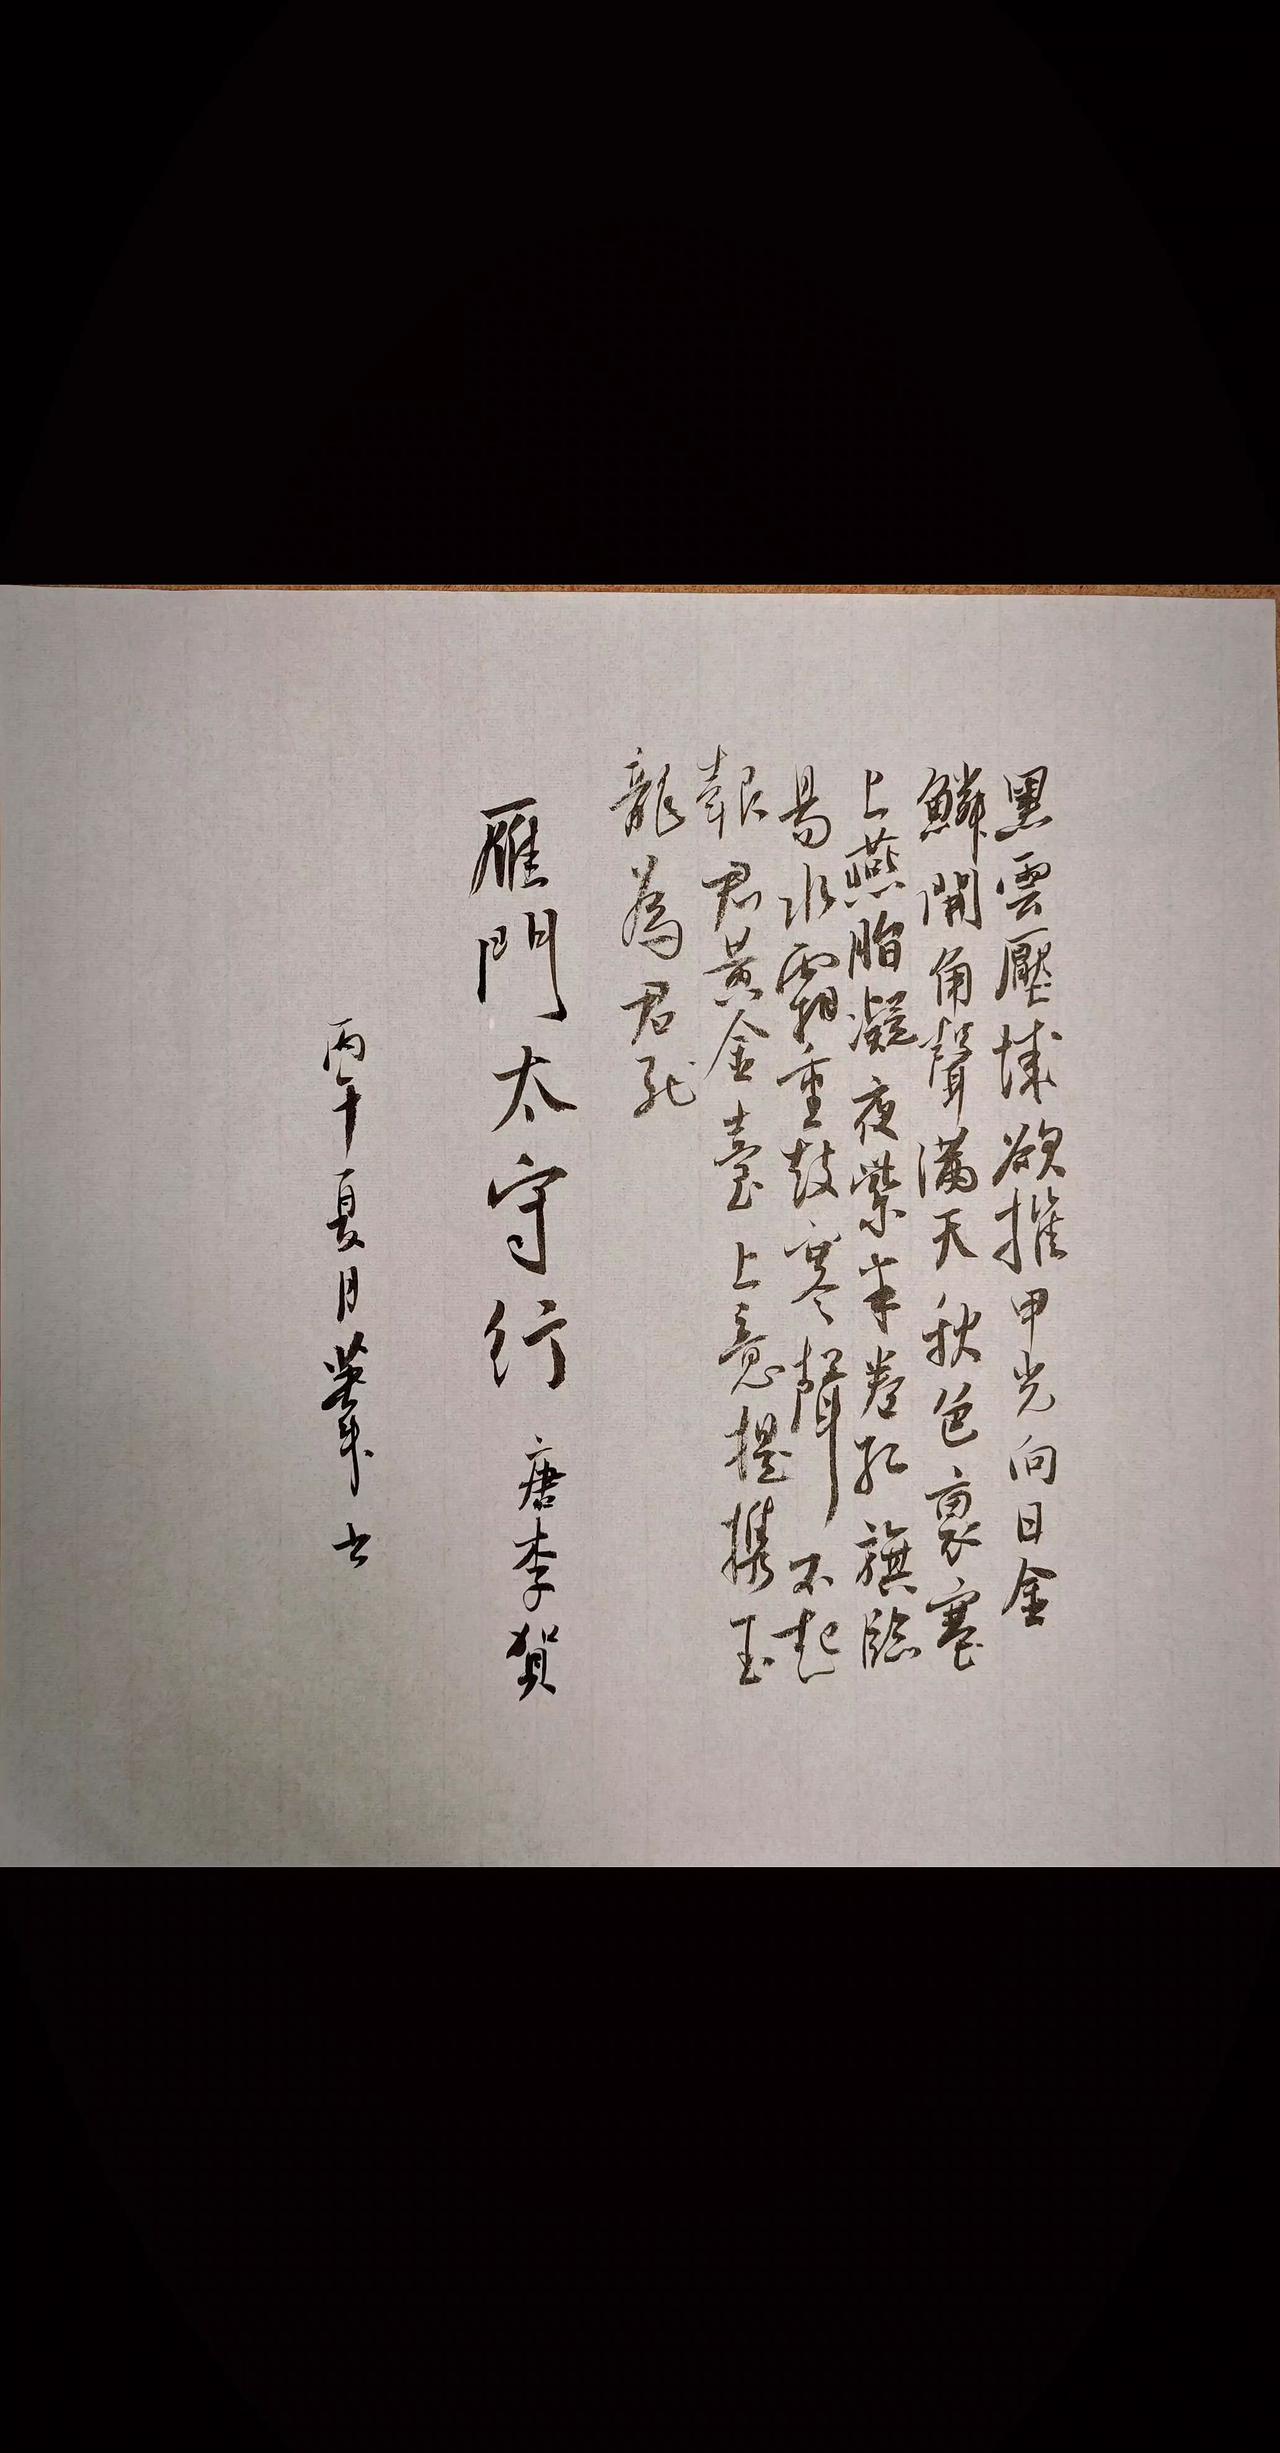 黑雲壓城欲摧甲光向日金
鱗開角聲滿天秋色裏塞
上燕脂凝夜紫半卷紅旗臨
易水霜重鼓寒聲不起
報君黃金臺上意提攜玉
龍為君死
雁門太守行 唐李賀
丙午夏月 書